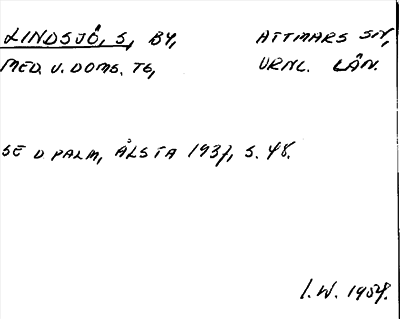 LINDSJÖ, S, BY, ATTMARS SN,
MED. U. DOMS. TG, VRNL. LÄN.
SE D PALM, ÅLSTA 1937, S. 48.
I. W. 1954.